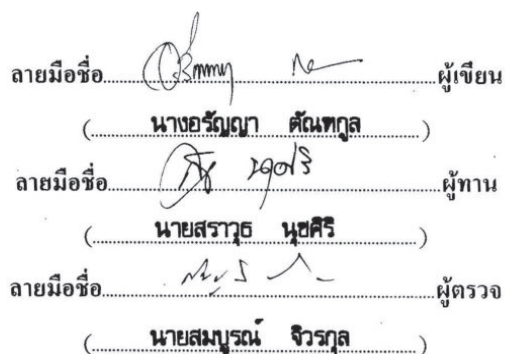 ลายมือชื่อ....................ผู้เขียน
(นางอรัญญา ตัณฑกูล)
ลายมือชื่อ....................ผู้ทาน
(นายสราวุธ นุชศิริ)
ลายมือชื่อ....................ผู้ตรวจ
(นายสมบูรณ์ จิวรกุล)